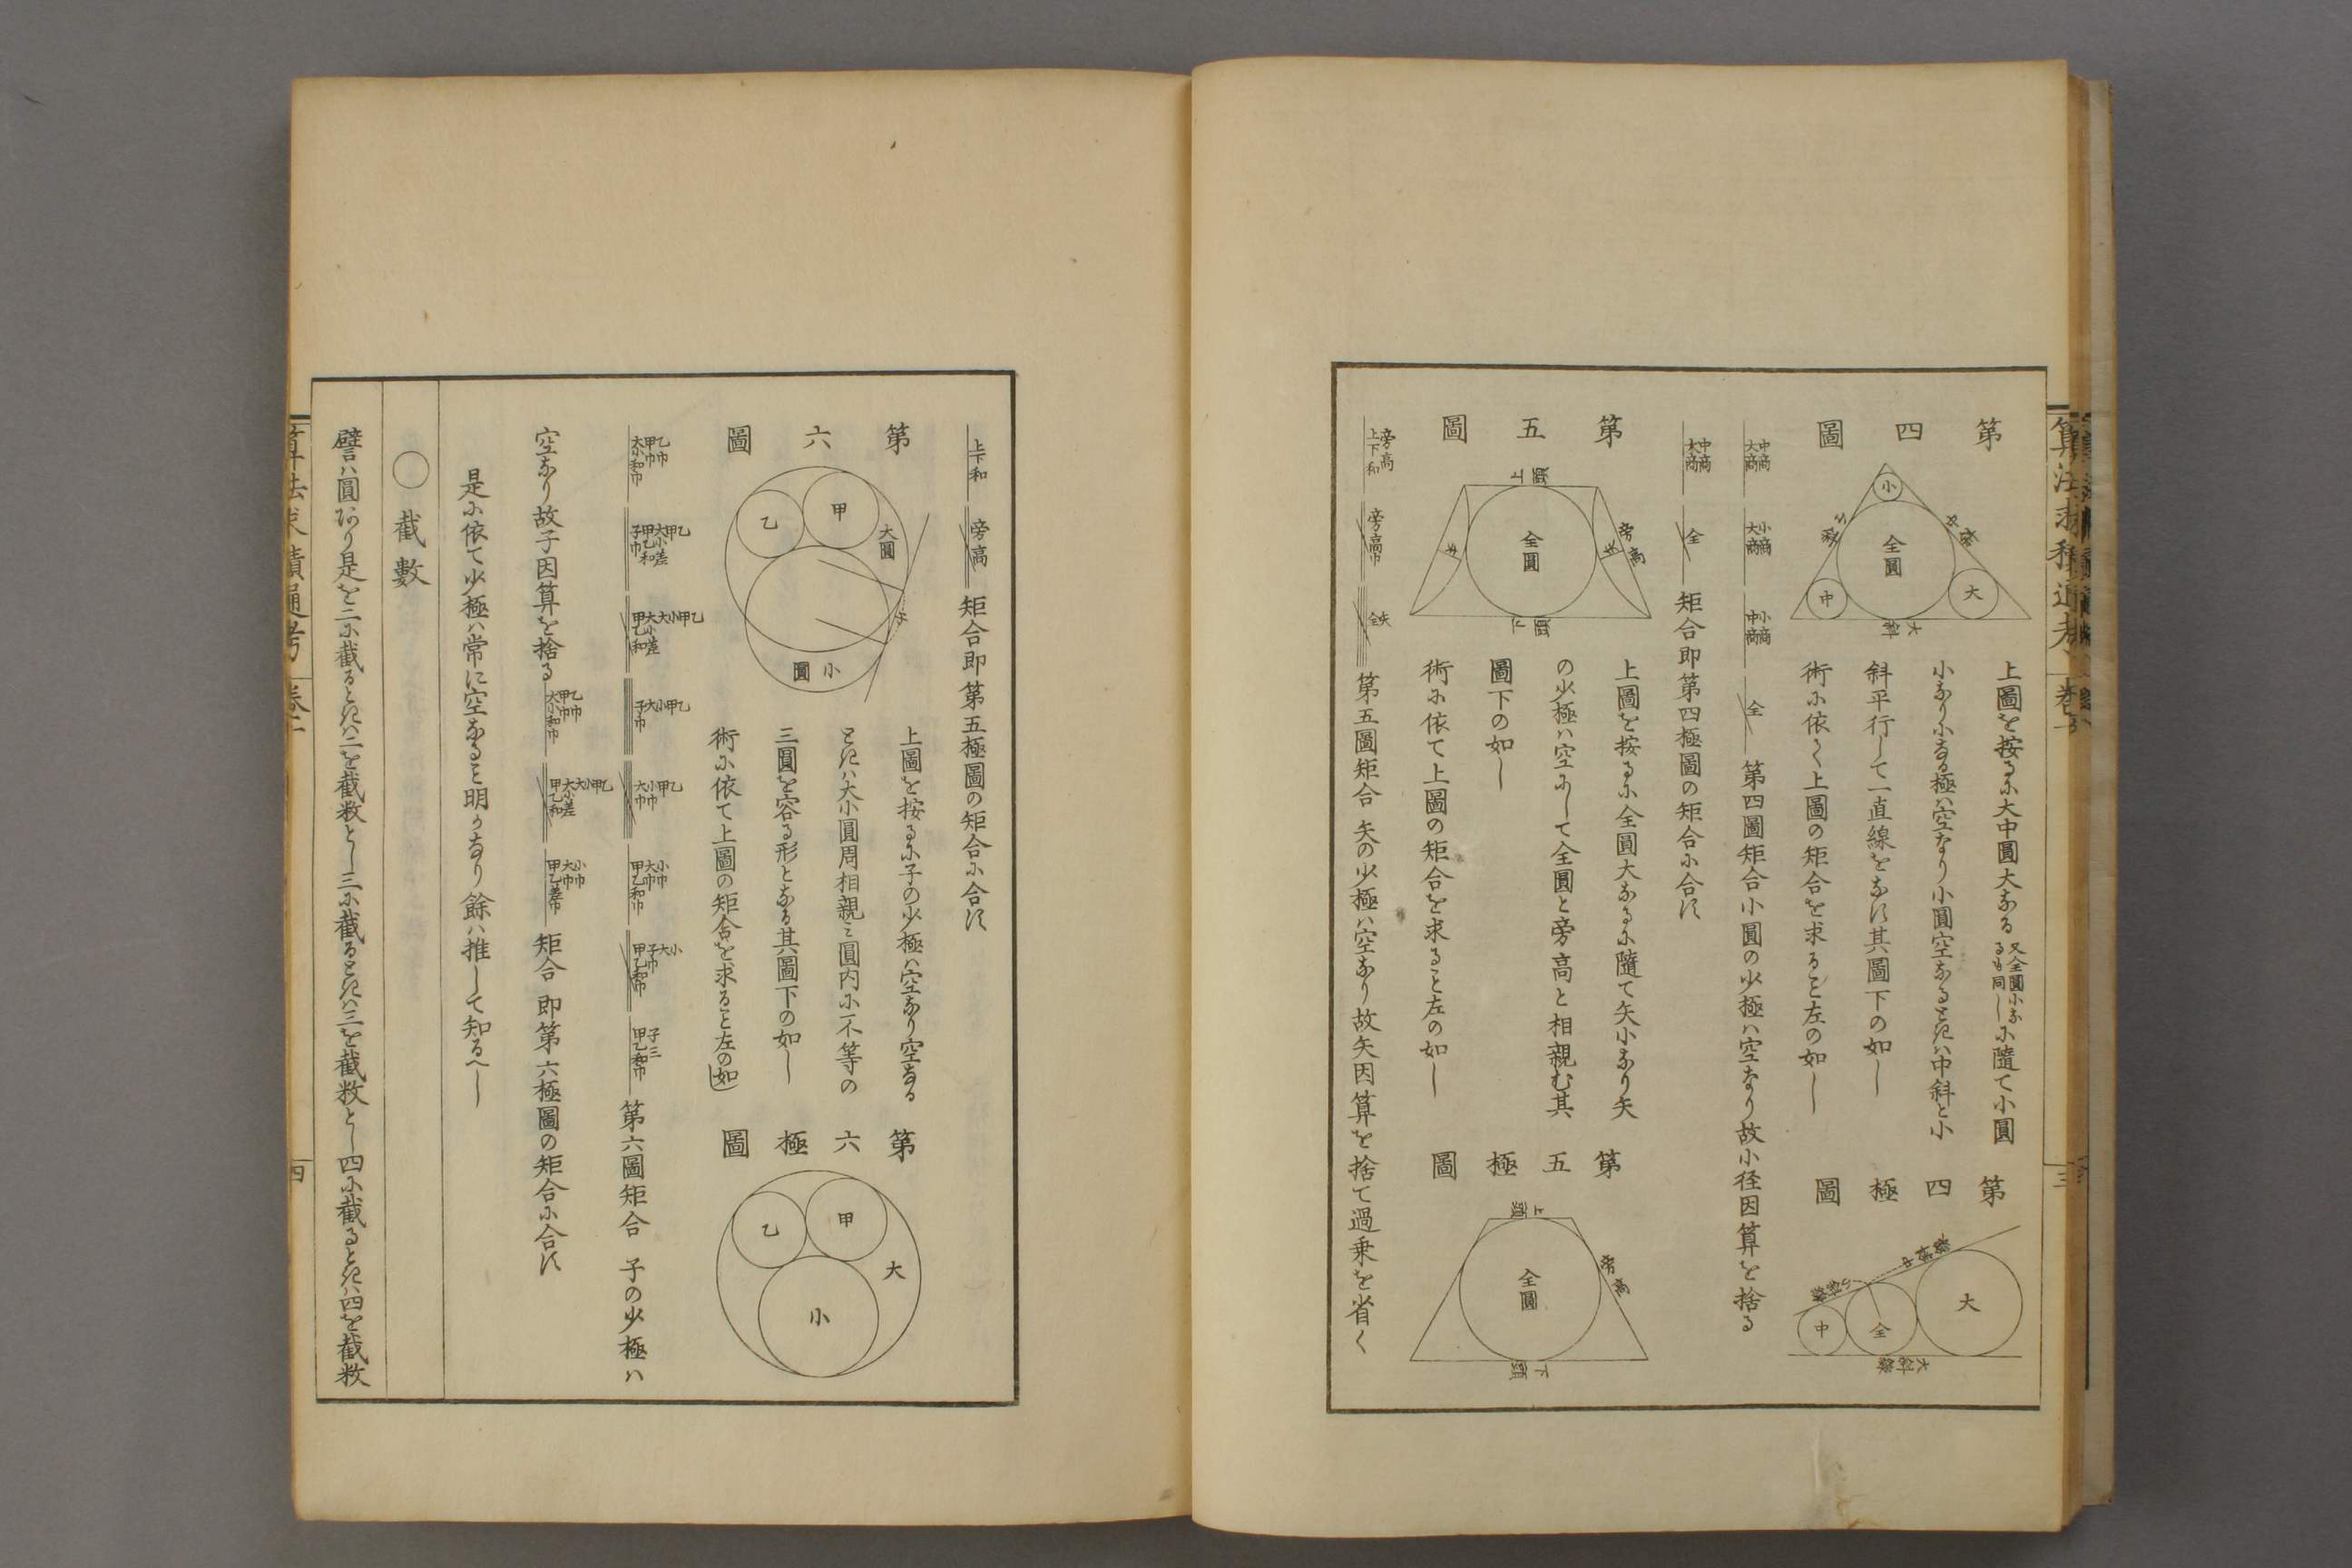 第四圖
小
全圓
中
大
上圖を按るに大中圓大なる又全圓小なるも同しに隨て小圓
小なり小なる極ハ空なり小圓空なるときハ中斜と小
斜平行して一直線をなす其圖下の如し
術に依く上圖の矩合を求ること左の如し
第四極圖
大
全
中
中商 大商
小商 大商
小商 中商
全
第四圖矩合小圓の少極ハ空なり故小径因算を捨る
中商 大商
全
矩合即第四極圖の矩合に合す
第五圖
上頭
全圓
旁高
矢
下頭
上圖を按るに全圓大なるに隨て矢小なり矢
の少極ハ空にして全圓と旁高と相親む其
圖下の如し
術に依て上圖の矩合を求ること左の如し
第五極圖
上頭
全圓
旁高
下頭
旁高 上下和
旁高巾
矢 全
第五圖矩合 矢の少極ハ空なり故矢因算を捨て過乗を省く
上下和
旁高
矩合即第五極圖の矩合に合す
第六圖
甲
乙
大圓
子
小圓
上圖を按るに子の少極ハ空なり空なる
ときハ大小圓周相親ミ圓内に不等の
三圓を容る形となる其圖下の如し
術に依て上圖の矩合を求ること左の如し
第六極圖
甲
乙
大
小
第六圖矩合 子の少極ハ
空なり故子因算を捨る
矩合 即第六極圖の矩合に合す
是に依て少極ハ常に空なること明かなり餘ハ推して知るへし
〇截數
譬ハ圓あり是を二に截るときハ二を截数とし三に截るときハ三を截数とし四に截るときハ四を截数
算法求積通考
卷一
四